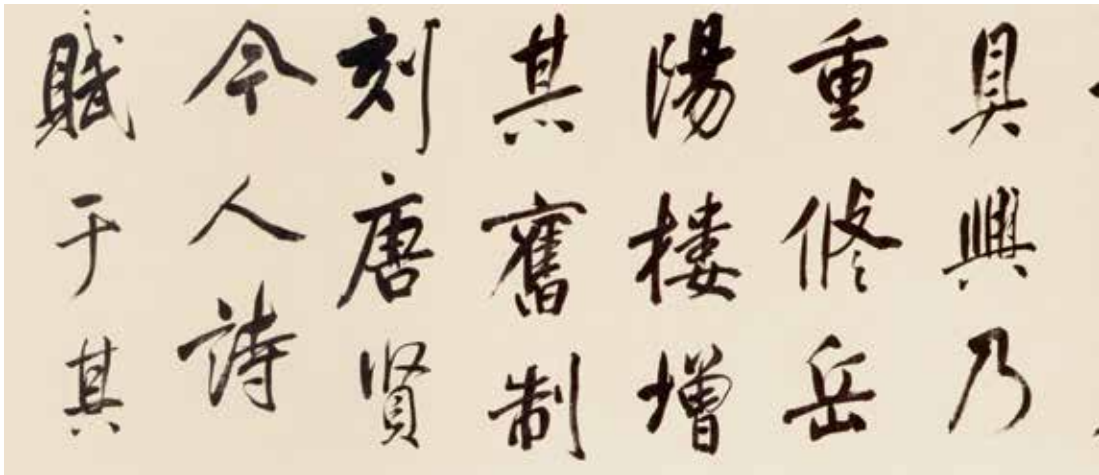 具興乃
重修岳
陽楼增
其舊制
刻唐賢
今人詩
賦于其